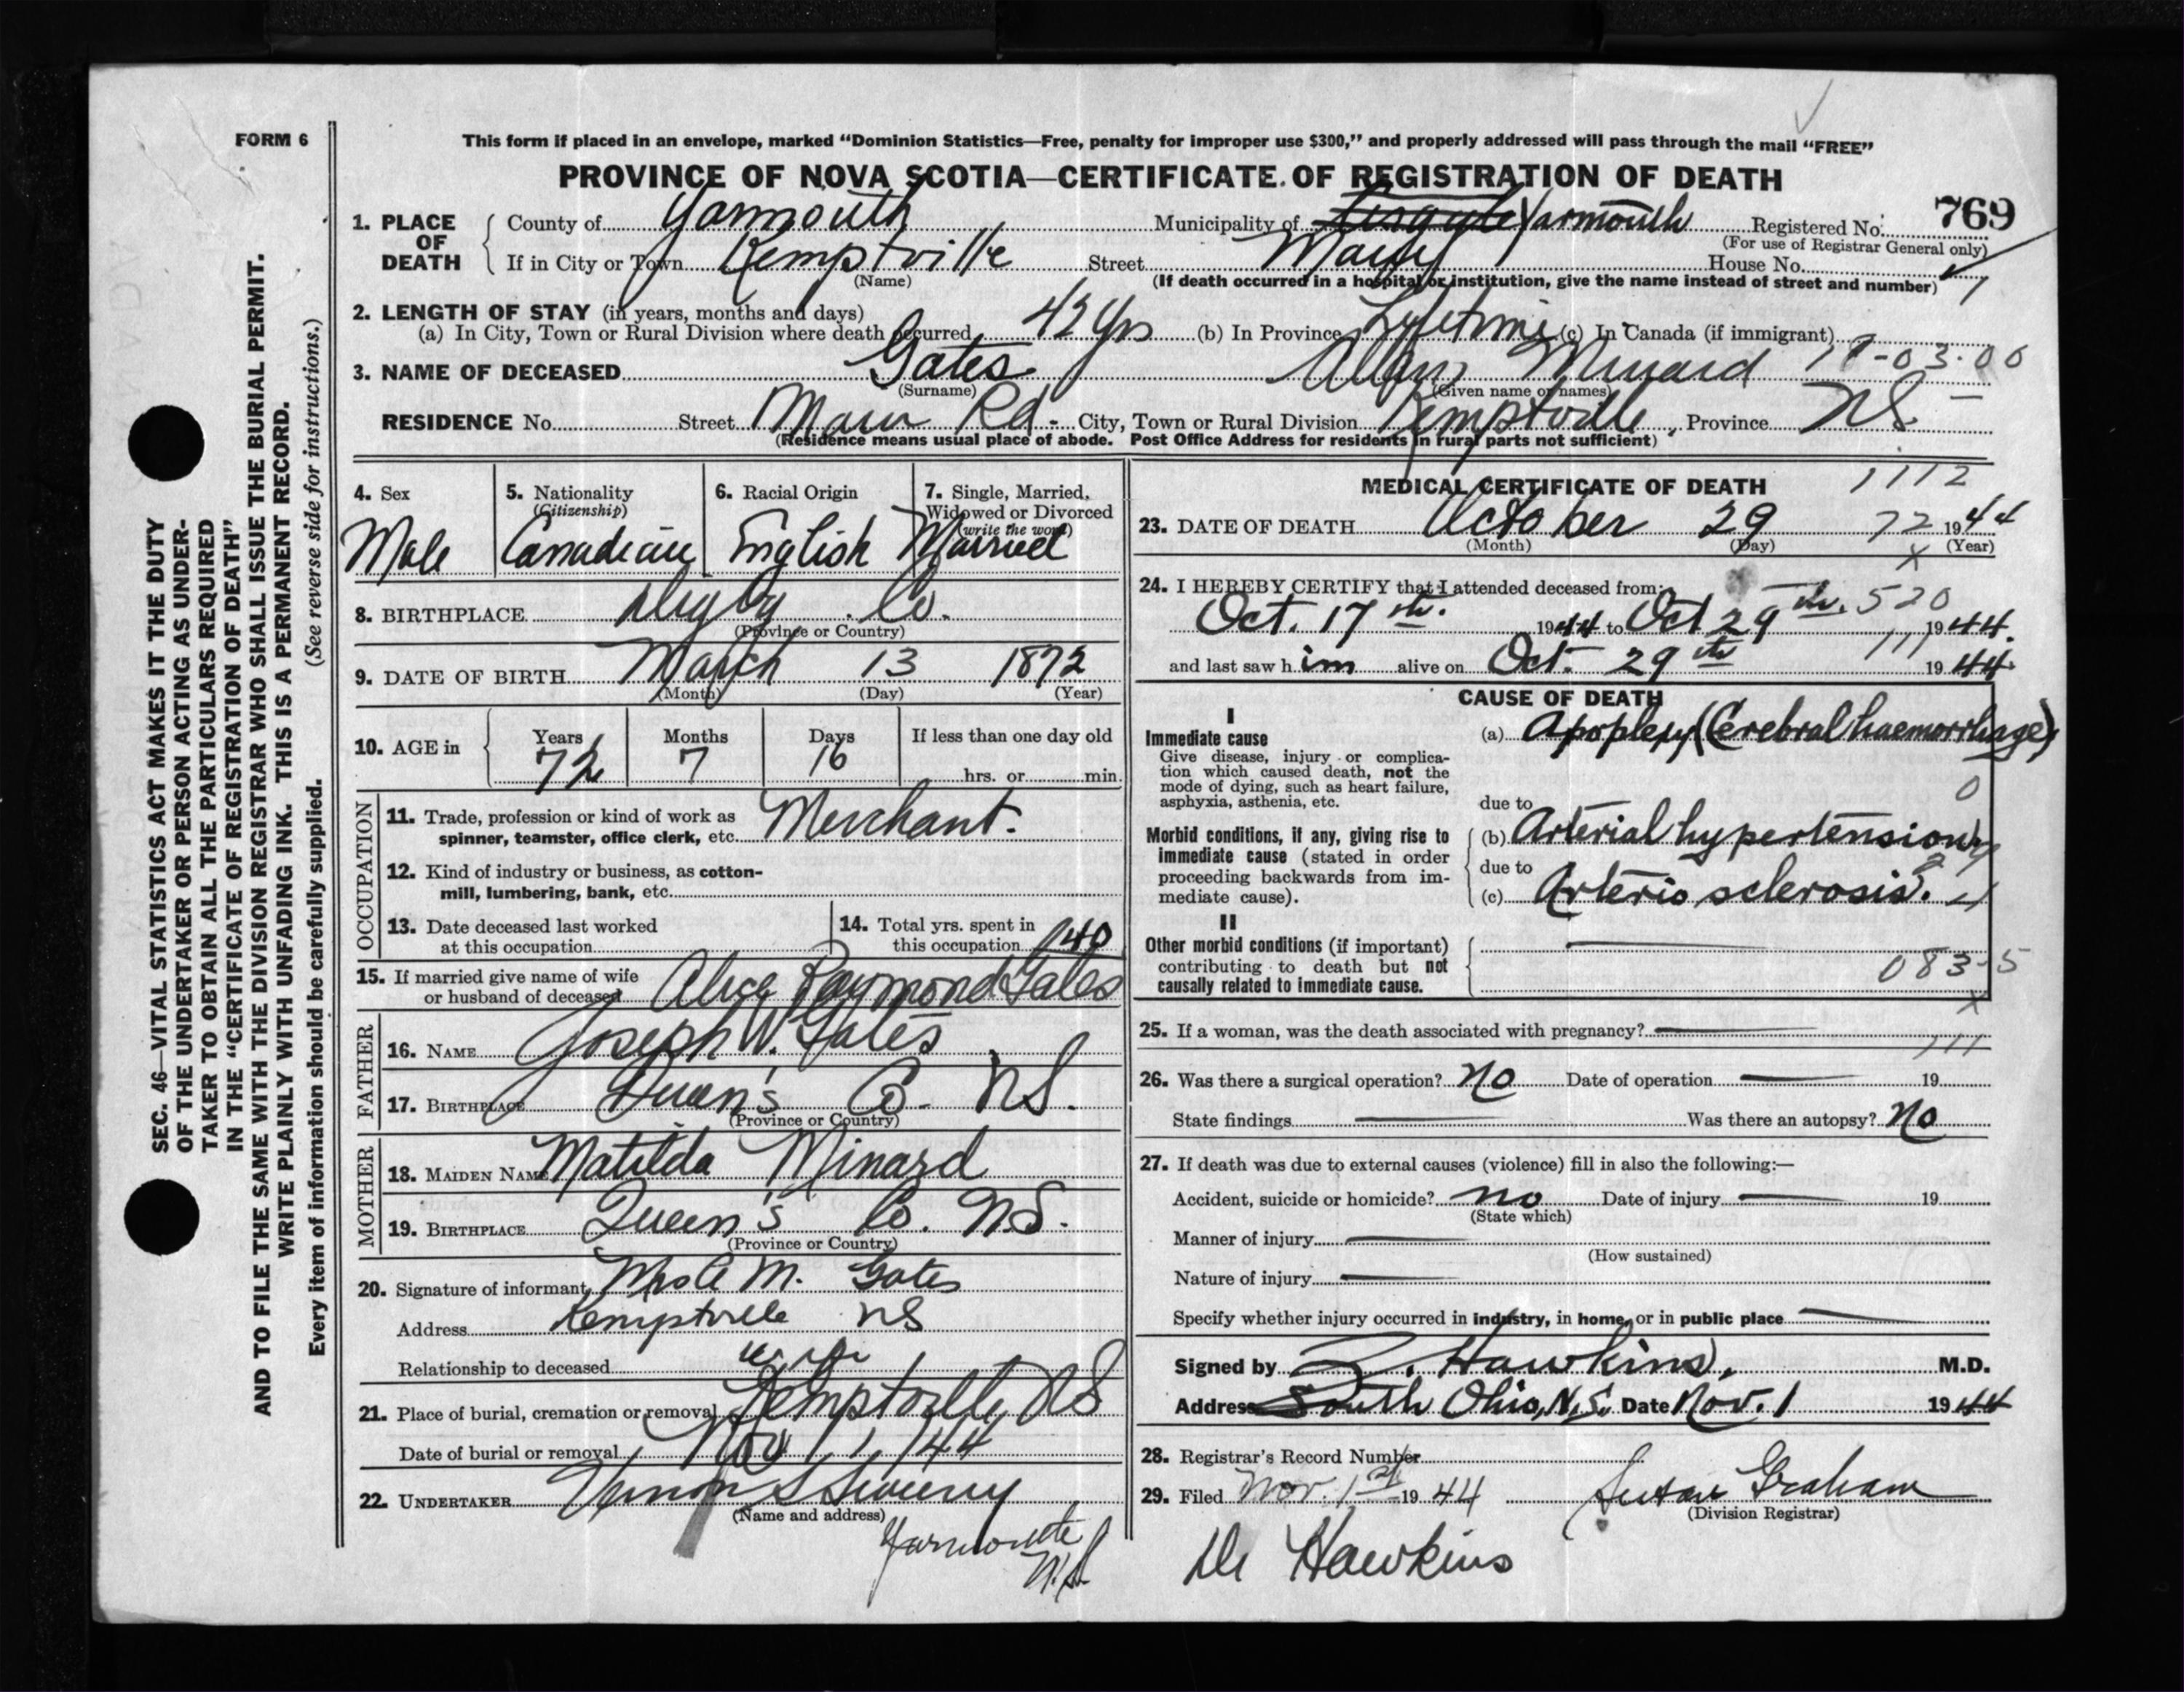 FORM 6
This form if placed in an envelope, marked “Dominion Statistics—Free, penalty for improper use $300,” and properly addressed will pass through the mail “FREE”
PROVINCE OF NOVA SCOTIA—CERTIFICATE OF REGISTRATION OF DEATH
1. PLACE OF DEATH
County of Yarmouth Municipality of Yarmouth Registered No. 769
(For use of Registrar General only)
If in City or Town Kemptville Street Main House No.
(Name) (If death occurred in a hospital or institution, give the name instead of street and number)
2. LENGTH OF STAY (in years, months and days)
(a) In City, Town or Rural Division where death occurred 42 Yrs (b) In Province Lifetime (c) In Canada (if immigrant)
3. NAME OF DECEASED Gates Minard -03-00
(Surname) (Given name or names)
RESIDENCE No. Street Main Rd - City, Town or Rural Division Kemptville, Province N.S. —
(Residence means usual place of abode. Post Office Address for residents in rural parts not sufficient)
4. Sex
Male
5. Nationality
(Citizenship)
Canadian
6. Racial Origin
English
7. Single, Married, Widowed or Divorced
(write the word)
Married
8. BIRTHPLACE Digby Co.
(Province or Country)
9. DATE OF BIRTH March 13 1872
(Month) (Day) (Year)
10. AGE in
Years 72
Months 7
Days 16
If less than one day old
hrs. or min.
OCCUPATION
11. Trade, profession or kind of work as
spinner, teamster, office clerk, etc. Merchant.
12. Kind of industry or business, as cotton-
mill, lumbering, bank, etc.
13. Date deceased last worked
at this occupation
14. Total yrs. spent in
this occupation 40
15. If married give name of wife
or husband of deceased Alice Raymond Gates
FATHER
16. NAME Joseph W. Gates
17. BIRTHPLACE Queen's Co. N.S.
(Province or Country)
MOTHER
18. MAIDEN NAME Matilda Minard
19. BIRTHPLACE Queen's Co. N.S.
(Province or Country)
20. Signature of informant Mrs A M. Gates
Address Kemptville NS
Relationship to deceased wife
21. Place of burial, cremation or removal Kemptville, NS
Date of burial or removal Nov 1, 1944
22. UNDERTAKER Vernon S Sweeny
(Name and address)
Yarmouth
N.S.
MEDICAL CERTIFICATE OF DEATH
1112
23. DATE OF DEATH October 29 72 1944
(Month) (Day) (Year)
x
24. I HEREBY CERTIFY that I attended deceased from:
520
Oct. 17th. 1944 to Oct 29th. 1944.
111
and last saw him alive on Oct. 29th 1944.
CAUSE OF DEATH
I
Immediate cause
Give disease, injury or complica-
tion which caused death, not the
mode of dying, such as heart failure,
asphyxia, asthenia, etc.
(a) Apoplexy (Cerebral haemorrhage)
0
due to
Morbid conditions, if any, giving rise to
immediate cause (stated in order
proceeding backwards from im-
mediate cause).
(b) Arterial hypertension
due to
(c) Arterio sclerosis.
II
Other morbid conditions (if important)
contributing to death but not
causally related to immediate cause.
083-5
x
25. If a woman, was the death associated with pregnancy? —
111
26. Was there a surgical operation? No Date of operation — 19
State findings — Was there an autopsy? No
27. If death was due to external causes (violence) fill in also the following:—
Accident, suicide or homicide? no Date of injury — 19
(State which)
Manner of injury —
(How sustained)
Nature of injury —
Specify whether injury occurred in industry, in home, or in public place —
Signed by Hawkins, M.D.
Address South Ohio, N.S. Date Nov. 1 1944
28. Registrar's Record Number
29. Filed Nov. 1st 1944 Graham
(Division Registrar)
Dr Hawkins
SEC. 46—VITAL STATISTICS ACT MAKES IT THE DUTY
OF THE UNDERTAKER OR PERSON ACTING AS UNDER-
TAKER TO OBTAIN ALL THE PARTICULARS REQUIRED
IN THE “CERTIFICATE OF REGISTRATION OF DEATH”
AND TO FILE THE SAME WITH THE DIVISION REGISTRAR WHO SHALL ISSUE THE BURIAL PERMIT.
WRITE PLAINLY WITH UNFADING INK. THIS IS A PERMANENT RECORD.
Every item of information should be carefully supplied. (See reverse side for instructions.)